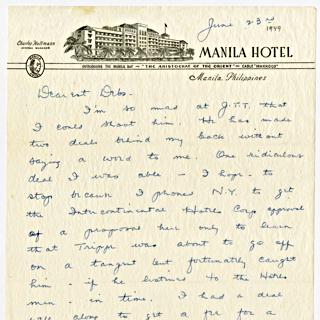 June 23rd
1949
MANILA HOTEL
OVERLOOKING THE MANILA BAY — "THE ARISTOCRAT OF THE ORIENT" — CABLE "MANHOTEL"
Manila, Philippines
Dearest Debs.
I'm so mad at J.T.T. that
I could shoot him. He has made
two deals behind my back without
saying a word to me. One ridiculous
deal I was able - I hope - to
stop because I phoned N.Y. to get
the Intercontinental Hotels Corp approval
of a proposal here only to learn
that Trippe was about to go off
on a tangent but fortunately caught
him - if he listens to the Hotels
men - in time. I had a deal
along to get a for a